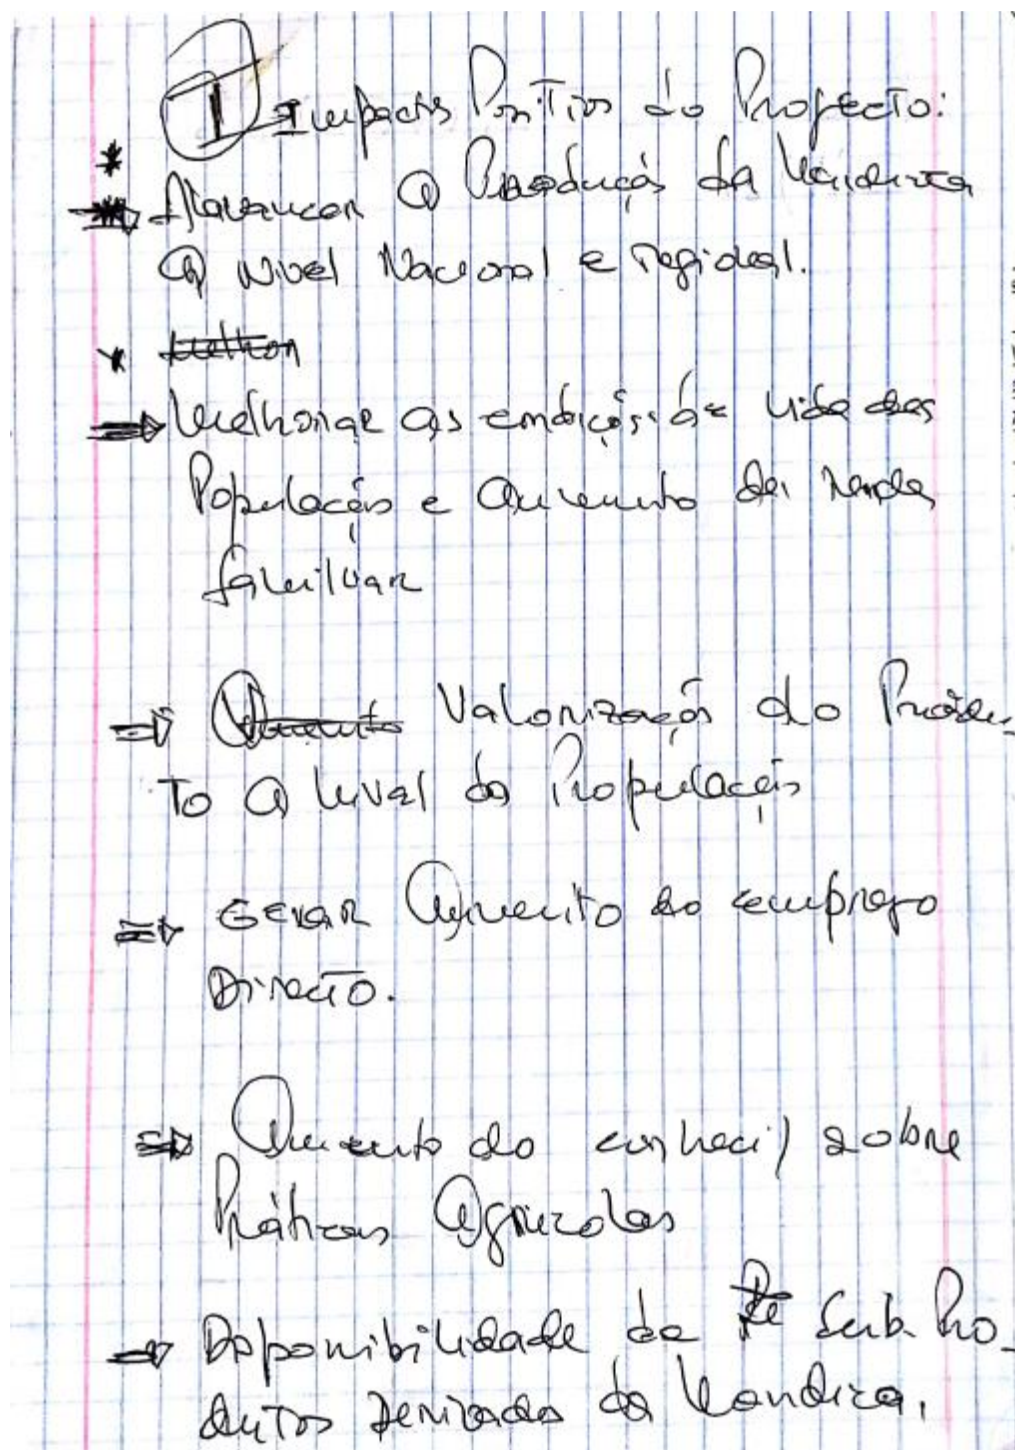 I Impactos Positivos do Projecto:
Alavancar a Producção da Mandioca
a Nivel Nacional e regional.
Melhorar as condições de vida das
População e aumento da renda
familiar
Valorização do Produ-
to a nível da População
Gerar Aumento do emprego
Directo.
Aumento do conheci/ sobre
Práticas Agricolas
Disponibilidade de Sub. Pro-
dutos derivados da Mandioca.